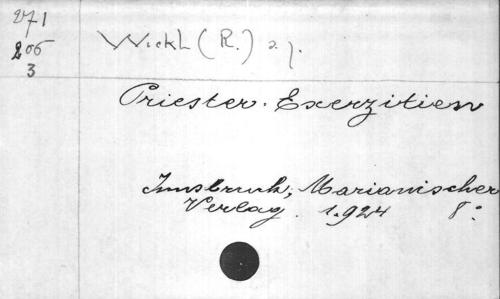 271
206
3
Wickl (R.) s. j.
Priester. Exerzitien
Innsbruck, Marianischer
Verlag. 1.924 8°